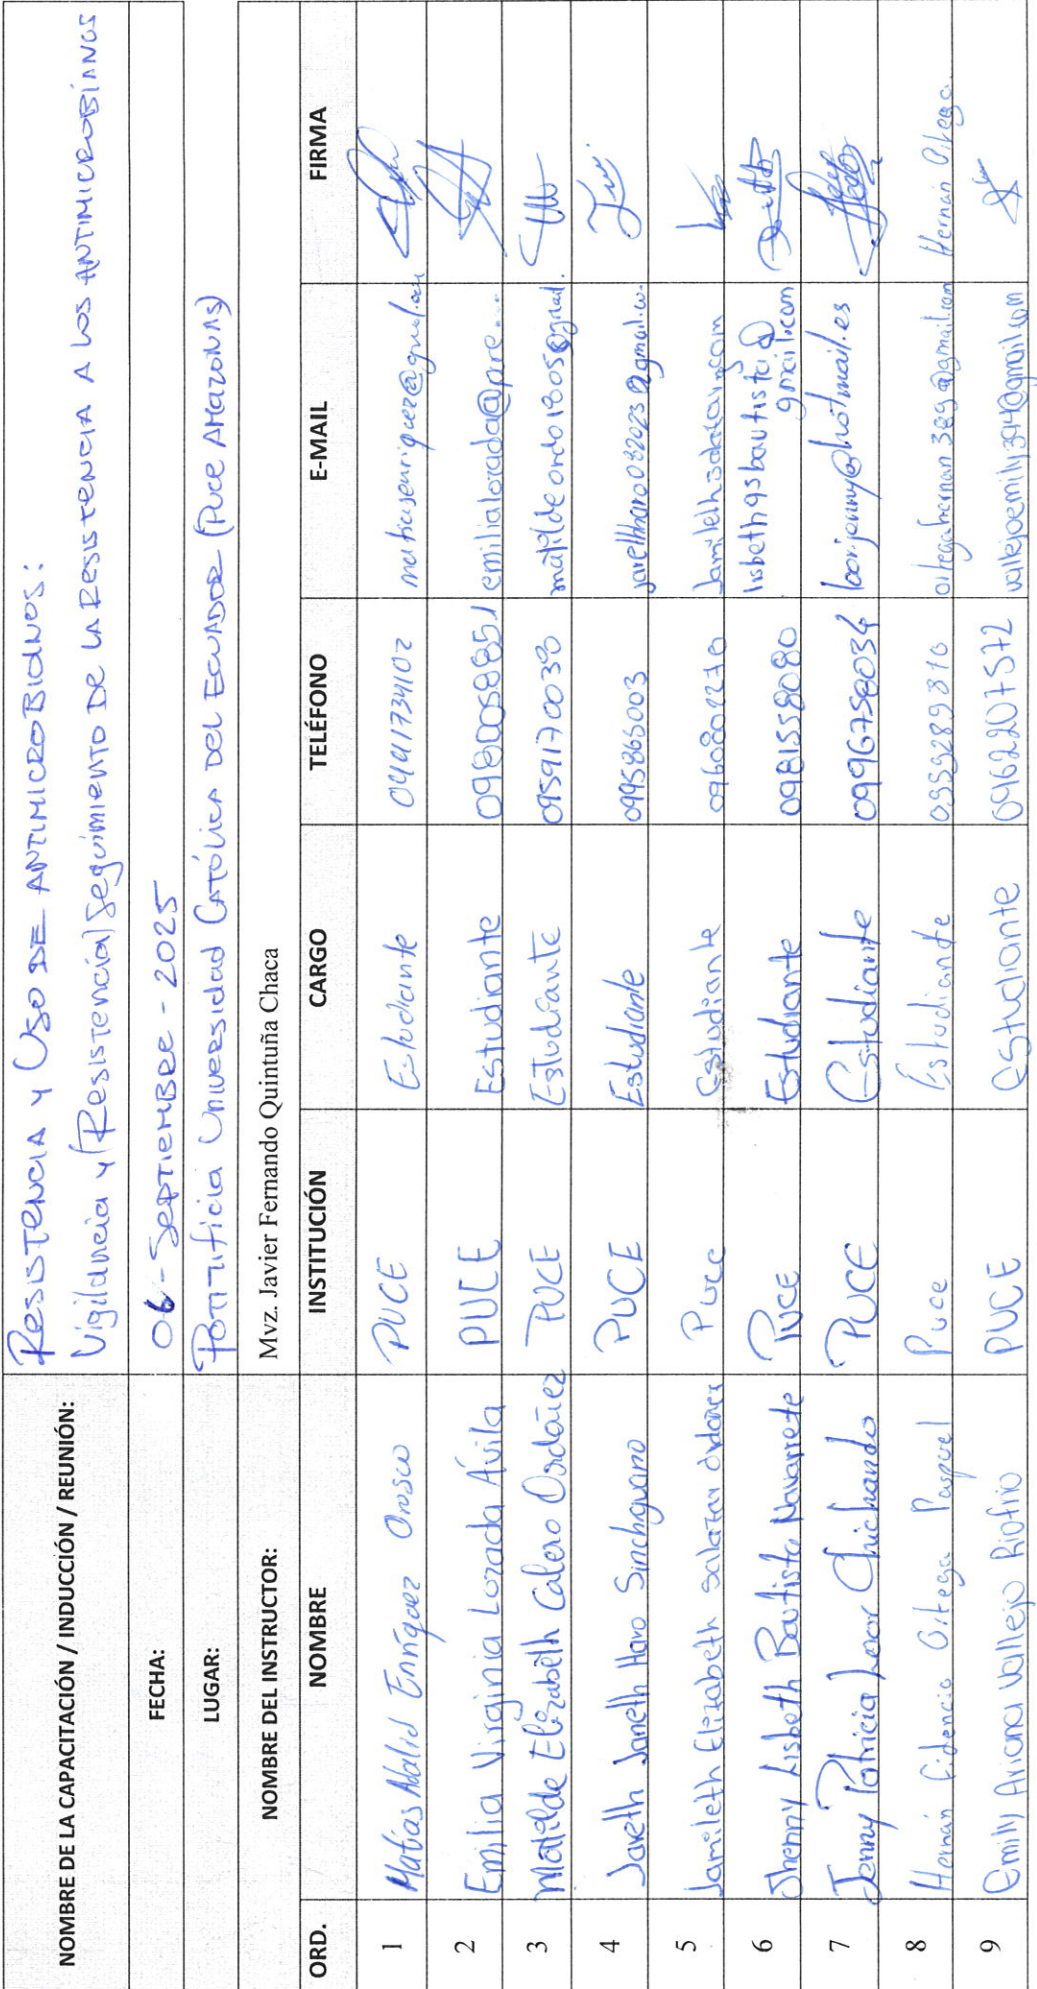 NOMBRE DE LA CAPACITACIÓN / INDUCCIÓN / REUNIÓN: Resistencia y Uso de Antimicrobianos:
Vigilancia y (Resistencia) Seguimiento de la Resistencia a los Antimicrobianos
FECHA: 06 - Septiembre - 2025
LUGAR: Pontificia Universidad Católica del Ecuador (Puce Amazonas)
NOMBRE DEL INSTRUCTOR: Mvz. Javier Fernando Quintuña Chaca
ORD. NOMBRE INSTITUCIÓN CARGO TELÉFONO E-MAIL FIRMA
1 Matías Adalid Enríquez Orosco PUCE Estudiante
2 Emilia Virginia Lozada Ávila PUCE Estudiante 0980058851
3 Matilde Elizabeth Calero Ordóñez PUCE Estudiante 0959170038 matildeordo1805@gmail.
4 Janeth Haro Sinchguano PUCE Estudiante 0995865003
5 Jamileth Elizabeth Salazar Ordoñez Puce Estudiante
6 Jhenny Lisbeth Bautista Navarrete Puce Estudiante 0981558080 lisbeth95bautista@
gmail.com
7 Jenny Patricia Loor Chichando PUCE Estudiante 0996758034 loorjenny@hotmail.es
8 Hernán Fidencio Ortega Puce Estudiante ortegahernan389@gmail.com Hernán Ortega
9 Emilly Ariana Vallejo Riofrio PUCE Estudiante 0962207572 vallejoemily394@gmail.com